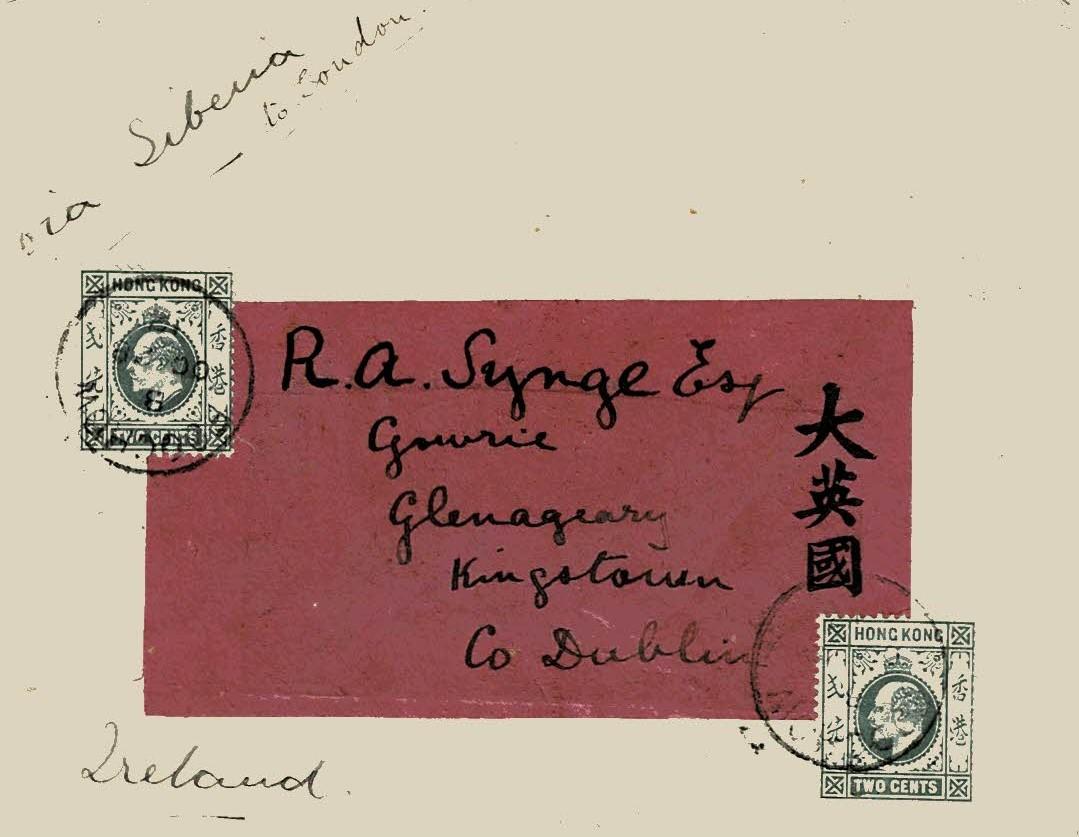 via Siberia
to London.
HONG KONG
香港
TWO CENTS
R. A. Synge Esq
Gowrie
Glenageary
Kingstown
Co Dublin
大英國
HONG KONG
香港
TWO CENTS
Ireland.